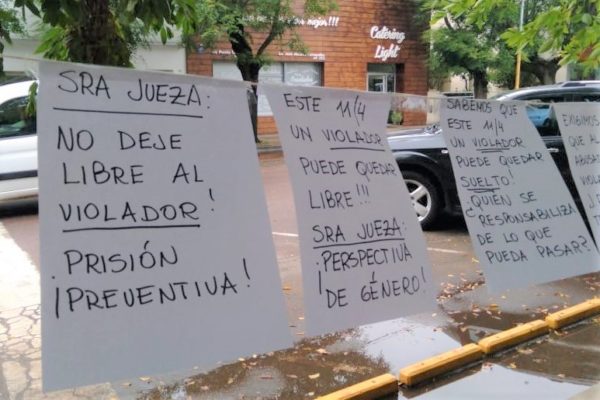 SRA JUEZA:
NO DEJE
LIBRE AL
VIOLADOR!
PRISIÓN
¡PREVENTIVA!
ESTE 11/4
UN VIOLADOR
PUEDE QUEDAR
LIBRE!!!
SRA JUEZA:
¡PERSPECTIVA
DE GÉNERO!
SABEMOS QUE
ESTE 11/4
UN VIOLADOR
PUEDE QUEDAR
SUELTO!
¿QUIÉN SE
RESPONSABILIZA
DE LO QUE
PUEDA PASAR?
EXIGIMOS
QUE
Catering
Light